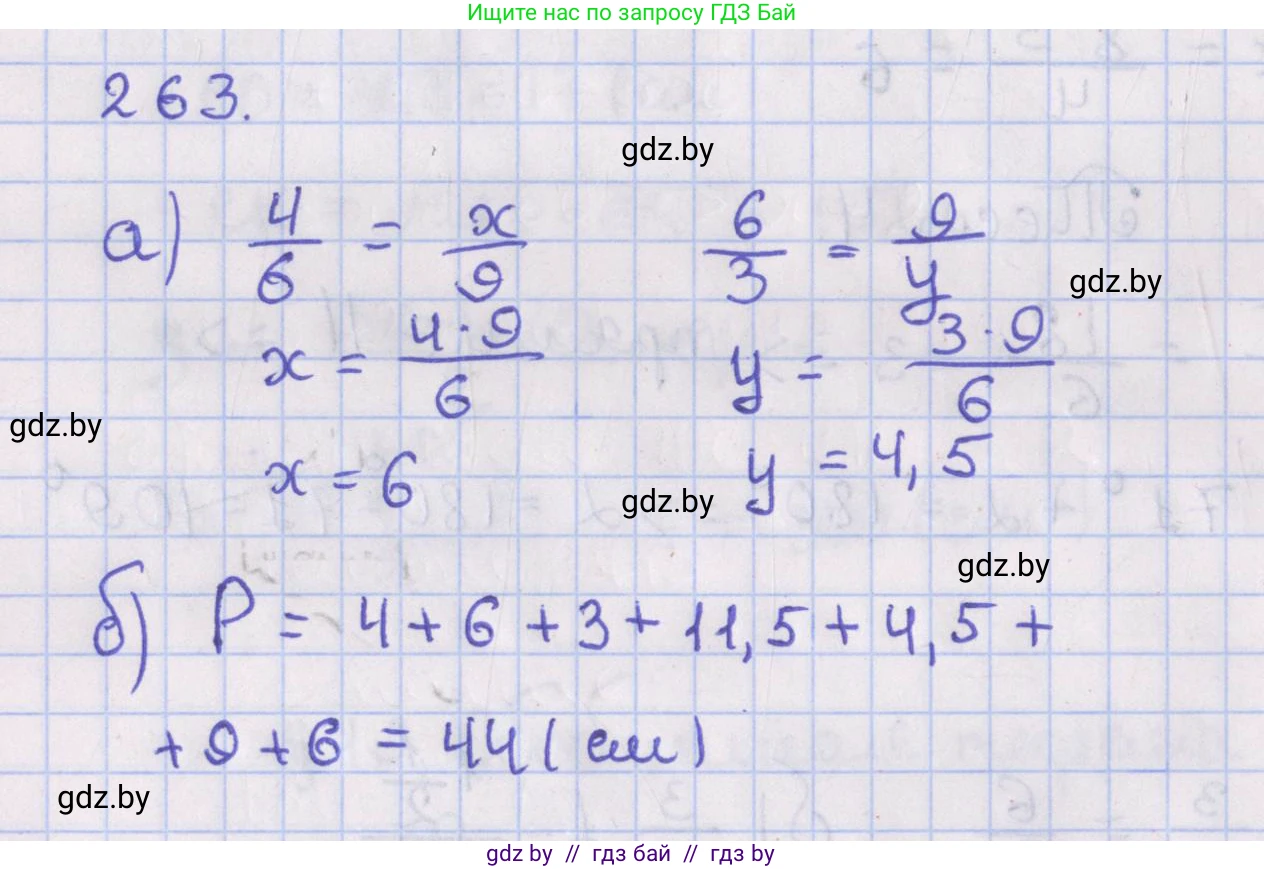 Ищите нас по запросу ГДЗ Бай
263.
gdz.by
а) 4/6 = x/9 6/3 = 9/y
gdz.by
x = 4·9/6 y = 3·9/6
gdz.by
x = 6 y = 4,5
gdz.by
gdz.by
б) P = 4 + 6 + 3 + 11,5 + 4,5 +
+ 9 + 6 = 44 (см)
gdz.by
gdz by // гдз бай // гдз by